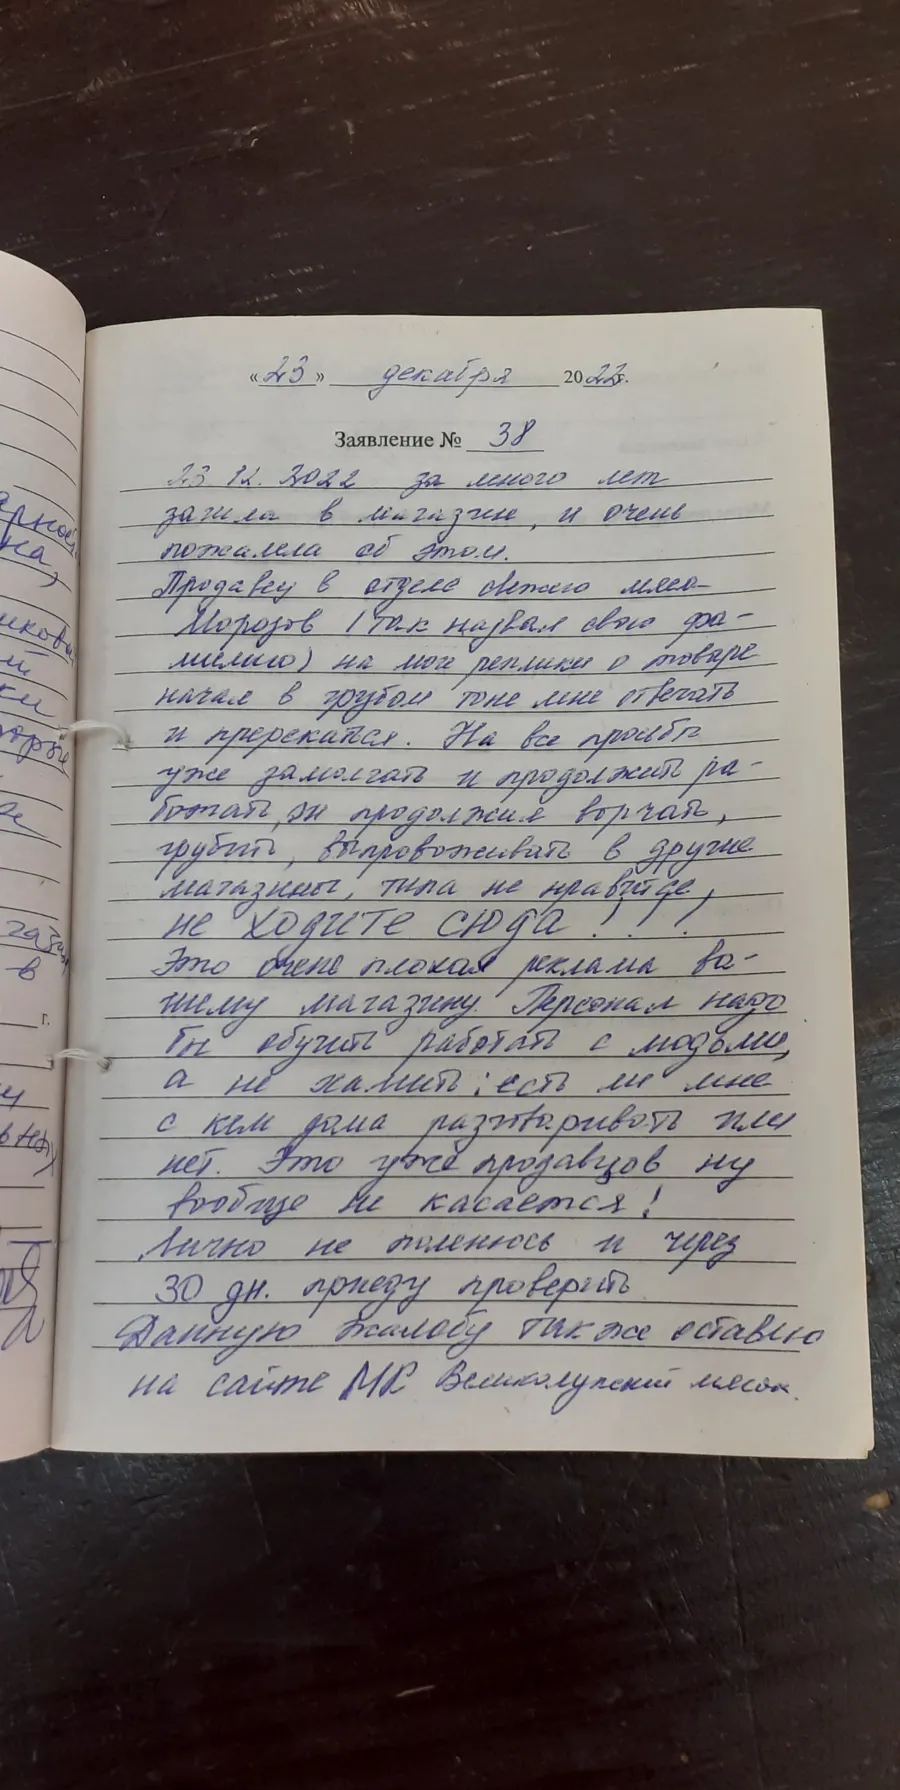 « 23 » декабря 2022г.
Заявление № 38
23.12.2022 за много лет
зашла в магазин, и очень
пожалела об этом.
Продавец в отделе свежего мяса
Морозов (так назвал свою фа-
милию) на мои реплики о товаре
начал в грубом тоне мне отвечать
и пререкаться. На все просьбы
уже замолчать и продолжить ра-
ботать, он продолжил ворчать,
грубить, выпроваживать в другие
магазины, типа не нравится,
не ходите сюда!!!
Это очень плохая реклама ва-
шему магазину. Персонал надо
бы обучить работать с людьми,
а не хамить: есть ли мне
с кем дома разговаривать или
нет. Это уже продавцов ну
вообще не касается!
Лично не поленюсь и через
30 дн. приеду проверить
Данную жалобу также оставлю
на сайте МК Великолукский
арной
на,
в
г.